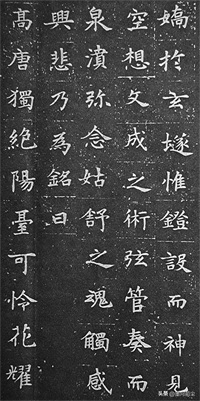 嬌扵玄隧惟鐙設而神見
空想文成之術弦管奏而
泉濆弥念姑舒之魂觸感
興悲乃為銘曰
髙唐獨絕陽臺可憐花耀
头条